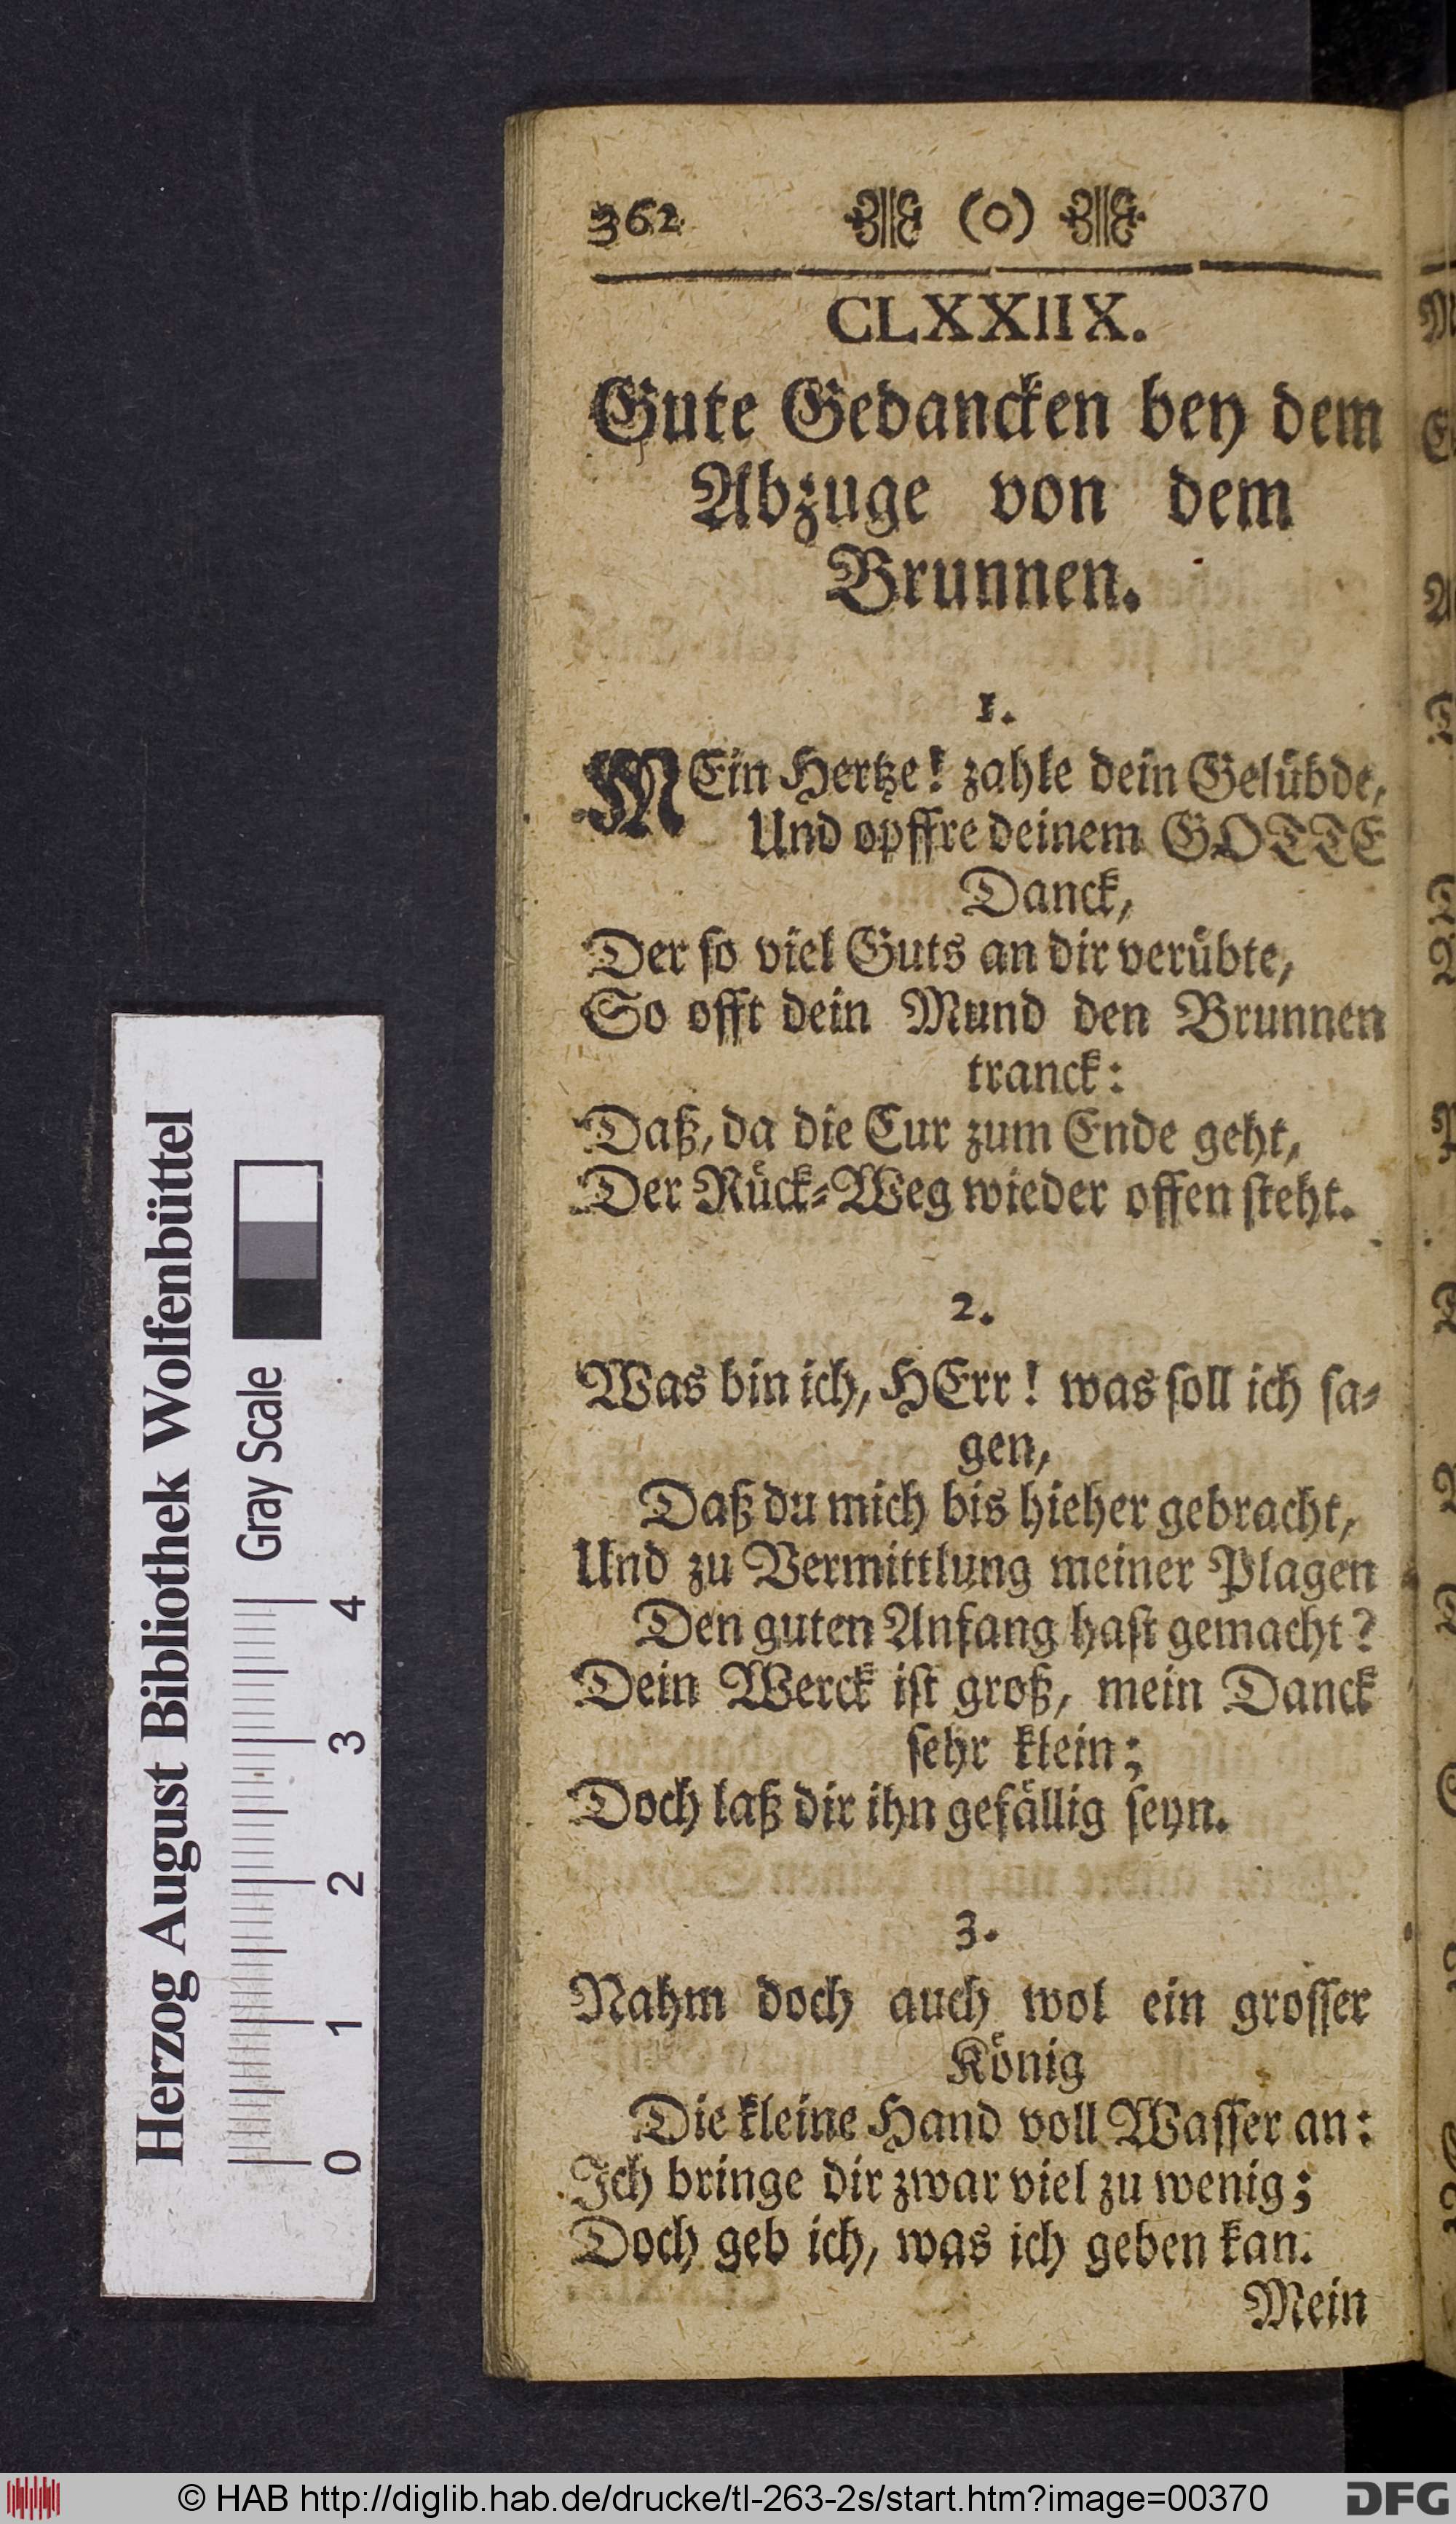 362 (o)
CLXXIIX.
Gute Gedancken bey dem
Abzuge von dem
Brunnen.
1.
MEin Hertze! zahle dein Gelübde,
Und opffre deinem GOTTE
Danck,
Der so viel Guts an dir verübte,
So offt dein Mund den Brunnen
tranck:
Daß, da die Cur zum Ende geht,
Der Rück-Weg wieder offen steht.
2.
Was bin ich, HErr! was soll ich sa-
gen,
Daß du mich bis hieher gebracht,
Und zu Vermittlung meiner Plagen
Den guten Anfang hast gemacht?
Dein Werck ist groß, mein Danck
sehr klein;
Doch laß dir ihn gefällig seyn.
3.
Nahm doch auch wol ein grosser
König
Die kleine Hand voll Wasser an:
Ich bringe dir zwar viel zu wenig;
Doch geb ich, was ich geben kan.
Mein
Herzog August Bibliothek Wolfenbüttel
Gray Scale
0 1 2 3 4
© HAB http://diglib.hab.de/drucke/tl-263-2s/start.htm?image=00370
DFG